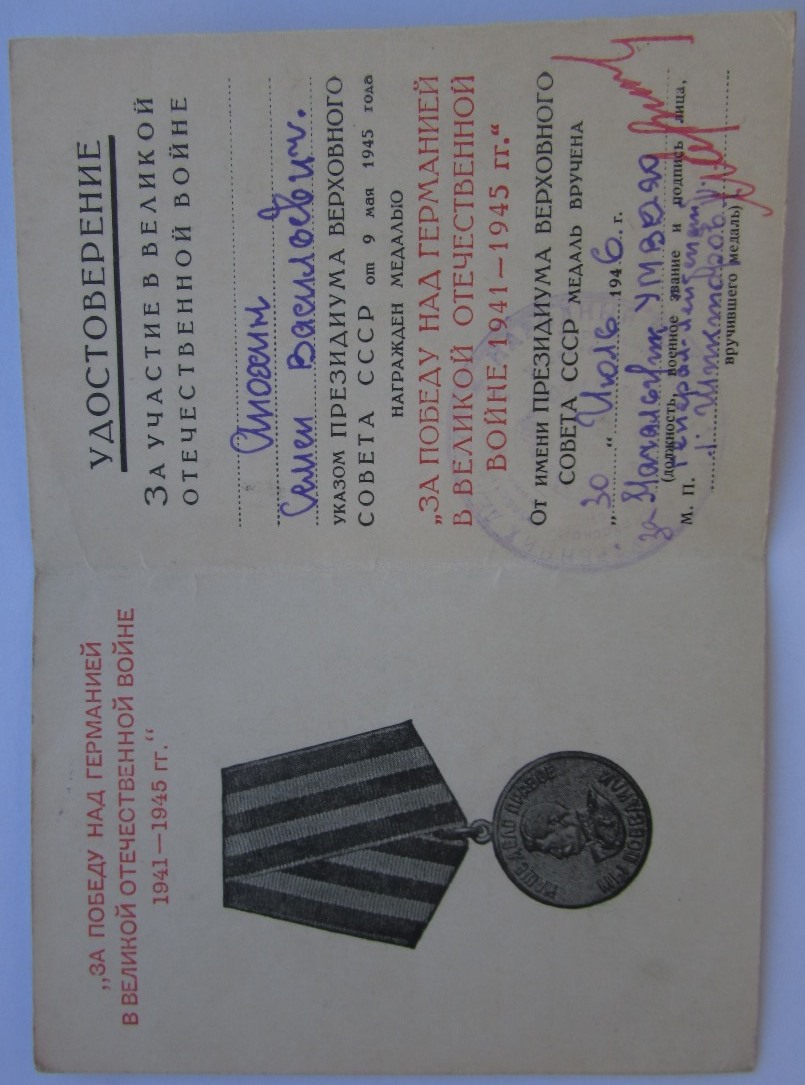 „ЗА ПОБЕДУ НАД ГЕРМАНИЕЙ
В ВЕЛИКОЙ ОТЕЧЕСТВЕННОЙ ВОЙНЕ
1941—1945 гг.“
НАШЕ ДЕЛО ПРАВОЕ
МЫ ПОБЕДИЛИ
УДОСТОВЕРЕНИЕ
ЗА УЧАСТИЕ В ВЕЛИКОЙ
ОТЕЧЕСТВЕННОЙ ВОЙНЕ
Анохин
Семен Васильевич.
УКАЗОМ ПРЕЗИДИУМА ВЕРХОВНОГО
СОВЕТА СССР от 9 мая 1945 года
НАГРАЖДЕН МЕДАЛЬЮ
„ЗА ПОБЕДУ НАД ГЕРМАНИЕЙ
В ВЕЛИКОЙ ОТЕЧЕСТВЕННОЙ
ВОЙНЕ 1941—1945 гг.“
От ИМЕНИ ПРЕЗИДИУМА ВЕРХОВНОГО
СОВЕТА СССР МЕДАЛЬ ВРУЧЕНА
„30“ Июль 1946 г.
за Начальник УМВД
(должность, военное звание и подпись лица,
генерал лейтенант
М. П.
вручившего медаль)